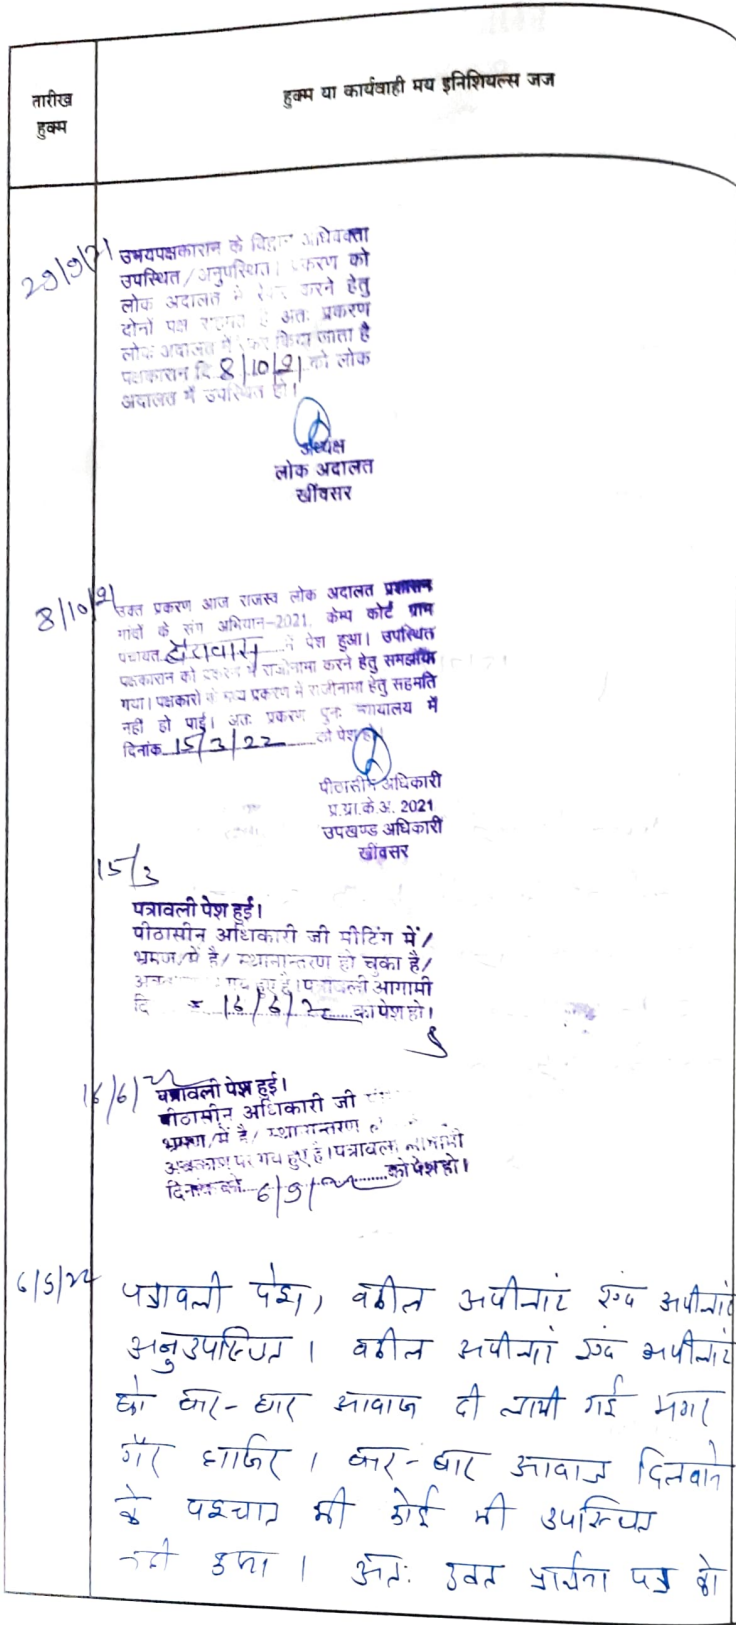 तारीख
हुक्म
हुक्म या कार्यवाही मय इनिशियल्स जज
29/9/21
उभयपक्षकारान के विद्वान अधिवक्ता
उपस्थित/अनुपस्थित। प्रकरण को
लोक अदालत में रेफर करने हेतु
दोनो पक्ष सहमत है अतः प्रकरण
लोक अदालत में रेफर किया जाता है
पक्षकारान दि 8/10/21 को लोक
अदालत में उपस्थित हो।
अध्यक्ष
लोक अदालत
खींवसर
8/10/21
उक्त प्रकरण आज राजस्व लोक अदालत प्रशासन
गांवों के संग अभियान-2021, केम्प कोर्ट ग्राम
पंचायत में पेश हुआ। उपस्थित
पक्षकारान को प्रकरण में राजीनामा करने हेतु समझाया
गया। पक्षकारों के मध्य प्रकरण में राजीनामा हेतु सहमति
नहीं हो पाई। अतः प्रकरण पुनः न्यायालय में
दिनांक 15/3/22 को पेश हो।
पीठासीन अधिकारी
प्र.ग्रा.के.अ. 2021
उपखण्ड अधिकारी
खींवसर
15/3
पत्रावली पेश हुई।
पीठासीन अधिकारी जी मीटिंग में/
भ्रमण/में है/ स्थानान्तरण हो चुका है/
गए हुए है। पत्रावली आगामी
दि 16/6/22 को पेश हो।
16/6/22
पत्रावली पेश हुई।
पीठासीन अधिकारी जी
भ्रमण/में है/ स्थानान्तरण
अवकाश पर गये हुए है। पत्रावली आगामी
दिनांक को 6/9/22 को पेश हो।
6/9/22
पत्रावली पेश, वकील अपीलांट एवं अपीलांट
अनुउपस्थित। वकील अपीलां एवं अपीलांट
को बार-बार आवाज दी लायी गई मगर
गैर हाजिर। बार-बार आवाज दिलवाने
के पश्चात भी कोई भी उपस्थित
नही हुआ। अतः उक्त प्रार्थना पत्र को